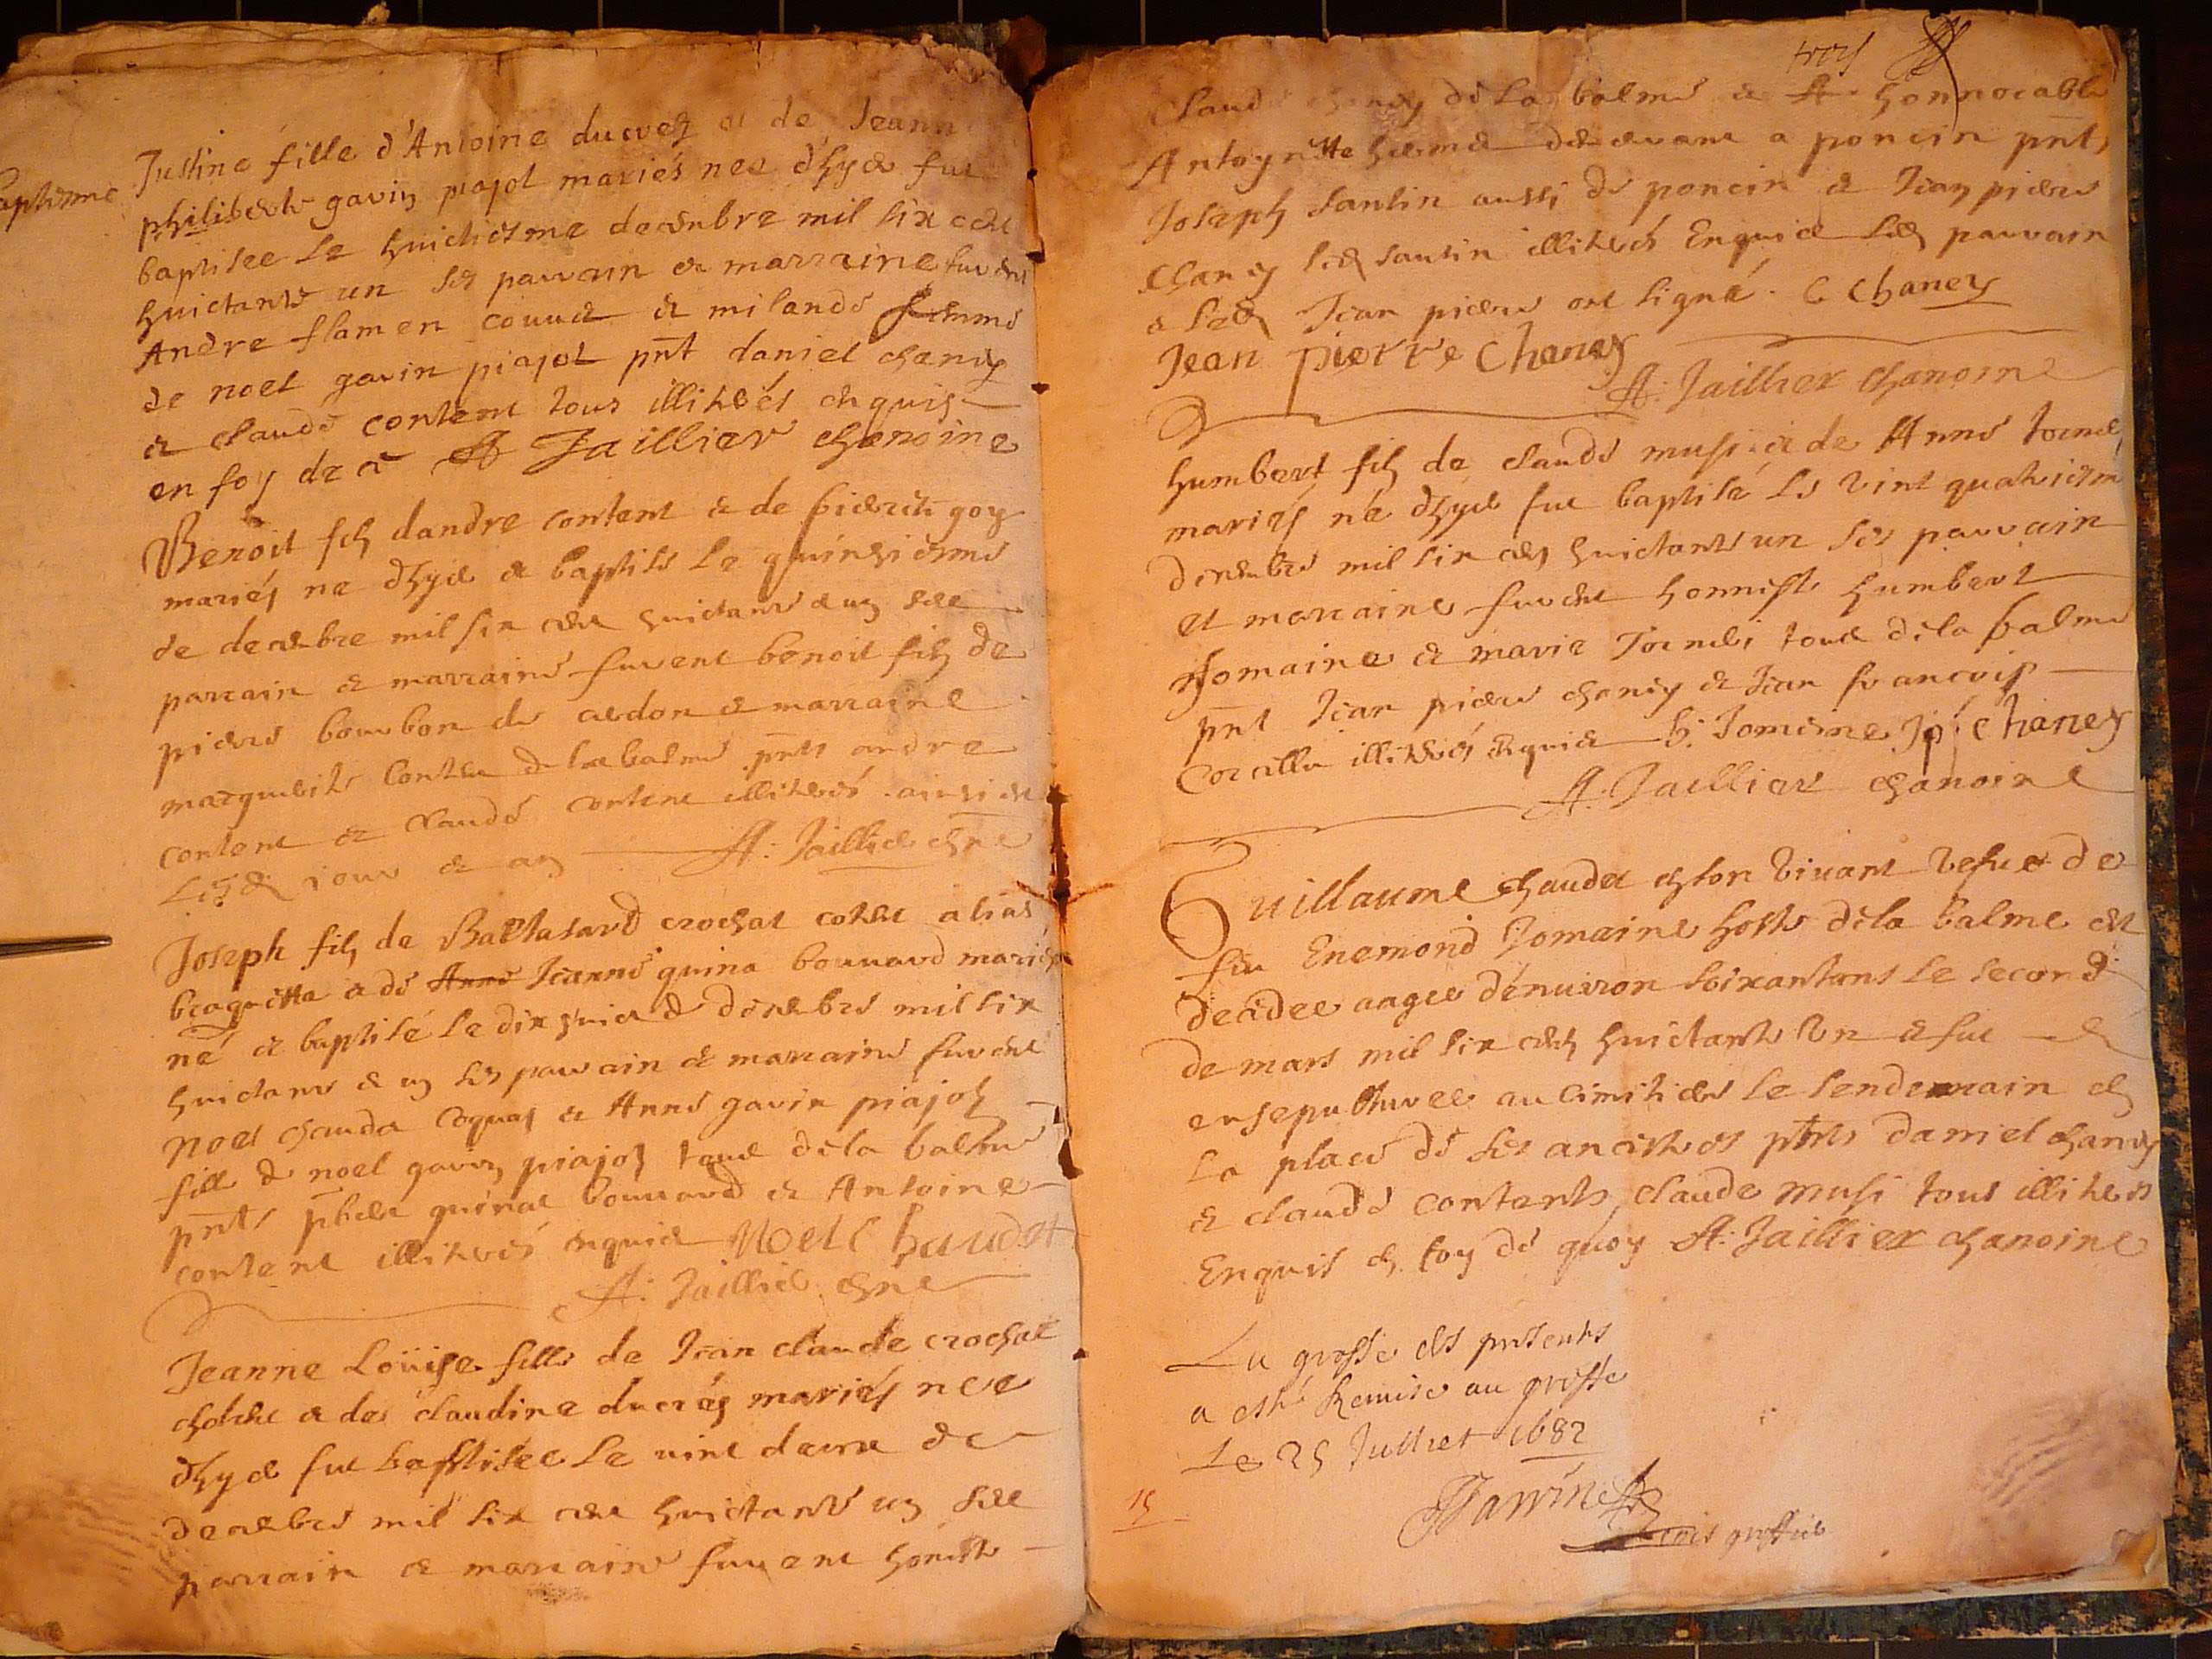 Baptisme
Justine fille d'Antoine ducrez et de Jeann
philiberte gavin piajot mariés nee d'hyer fut
baptisee le huictiesme decembre mil six cent
huictante un ses parrain et marraine furent
Andre flamen et milande femme
de noel gavin piajot pnt daniel chaney
et claude content tous illiterés enquis
en foy de ce A Jaillier chanoine
Benoit fils dandre content et de goy
mariés ne dhyer et baptisé le quinziesme
de decembre mil six cent huictante et un ses
parrain et marraine furent benoit fils de
pierre bourbon de cerdon et marraine
marguerite content de la balme pnts andre
content et claude content illiterés ainsi
les jour et an A: Jaillier chne
Joseph fils de Baltasard crochat alias
braquette et de Anne Jeanne guina bouvard mariés
né et baptisé le dix huict de decembre mil six
huictante et un ses parrain et marraine furent
noel chaudet et Anne gavin piajot
fille de noel gavin piajot tous de la balme
pnts guinat bouvard et Antoine
content illiterés enquis Noel Chaudet
A: Jaillier chne
Jeanne Loüise fille de Jean claude crochat
et de claudine ducrés mariés nee
dhyer fut baptisee le vint deux de
decembre mil six cent huictante un ses
parrain et marraine furent honeste
trois
claude chaney de la balme et honnorable
Antoynette a poncin pnts
Joseph santin aussi de poncin et Jean pierre
chaney led santin illiteré Enquis led parrain
et led Jean pierre ont signé. C Chaney
Jean pierre Chaney
A: Jaillier chanoine
humbert fils de claude musi et de Anne
mariés né dhyer fut baptisé le vint quatriesme
decembre mil six cent huictante un ses parrain
et marraine furent honneste humbert
Jomaine et marie tous de la balme
pnt Jean pierre chaney et Jean francois
illiterés enquis h: Jomaine Jp: Chaney
A: Jaillier chanoine
Guillaume chaudet en son vivant vefve de
feu Enemond Jomaine hoste de la balme est
decedee aagee d'environ soixante ans le second
de mars mil six cent huictante un et fut
ensepulturee au cimitiere le lendemain en
la place de ses ancestres pnts daniel chaney
et claude content, claude musi tous illiterés
Enquis en foy de quoy A: Jaillier chanoine
La grosse des presents
a esté Remise au greffe
Le 25 Julliet 1682
15
greffier